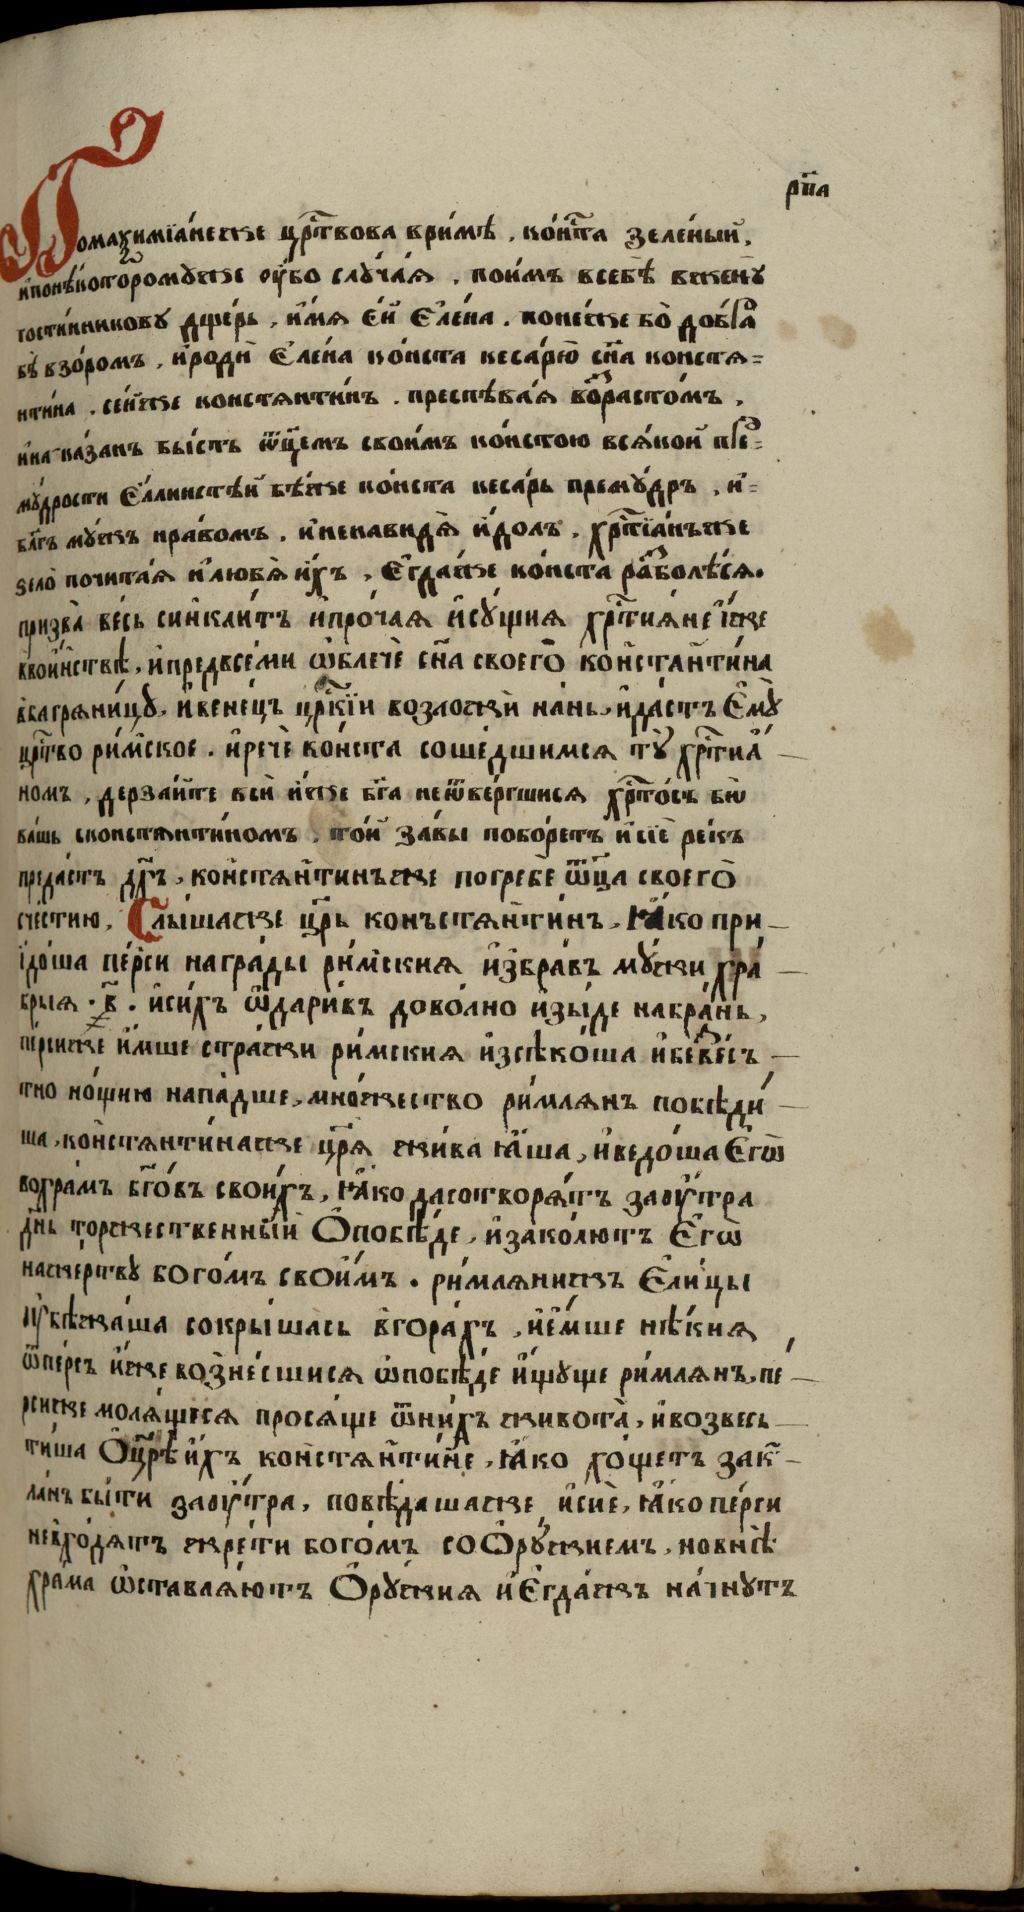 рп҃а
Помаѯимїа́неже црⷭ҇твова ври́мѣ , ко́нⷭ҇та зеле́ный ,
ипонѣ́которомуже ᲂу҆́бо слу́чаꙗ , поимъ всебѣ̀ вжену̀
гости́нникову дще́рь , и҆́мꙗ є҆́й Є҆ле́на . понеже бо̀ до́брⷪ҇а
бѣ̀ взо́ромъ , и҆роди̑ Є҆ле́на ко́нста кеса́рю̀ сн҃а констꙗ=
нти́на . се́йже констꙗнти́нъ . преспѣва́ꙗ во́зрасто́мъ ,
и҆наказанъ бы́сть ѿц҃емъ свои́мъ ко́нстою всѧ́кой пре=
му́дрости є҆́ллинстѣ́й бѣ́же ко́нста кеса́рь прему́дръ , и҆=
бл҃гъ му́жъ нра́вомъ . и҆ненави́дꙗ и҆́долъ , хрⷭ҇тїа́нъже
ѕѣло̀ почита́ꙗ и҆любѧ̀ и҆́хъ , Є҆гда́же ко́нста ра́зболѣ́сꙗ .
призва̀ ве́сь синкли́тъ и҆про́чаꙗ и҆су́щиꙗ хрⷭ҇тиꙗ́не и҆́же
вво́инствѣ , и҆предвсѣ́ми ѡ҆блечѐ сн҃а своего̀ константи́на
вбагрꙗни́цу , и҆вене́цъ црⷭ҇кїи возложи̑ на́нь , и҆да́стъ Є҆му̀
црⷭ҇тво ри́мское . и҆речѐ ко́нста соше́дшимсꙗ ту̀ хрⷭ҇тиꙗ́ –
номъ , дерза́йте всѝ и҆́же бг҃а неѿве́ргшисꙗ хрⷭ҇то́съ бо̀
ва́шъ сконстꙗнти́номъ , то́й за́вы побо́ретъ и҆сїѐ ре́къ
преда́стъ дх҃ъ , констꙗнти́нъже погребѐ ѿц҃а своего̀
сче́стию , Слы́шаже цр҃ь конъстꙗнти́нъ , ꙗ҆́ко при –
їдо́ша пе́рси награ́ды ри́мскиꙗ и҆збра́въ му́жи хра́ –
брыꙗ . в҃ . и҆си́хъ ѡ҆дари́въ дово́лно и҆зы́де набра́нь ,
пе́рсиже и҆́мше стра́жи ри́мскиꙗ и҆зсѣко́ша и҆безвѣ́съ –
тно но́щию напа́дше , мно́жество ри́млꙗнъ побѣди́ –
ша , констꙗнти́наже цр҃ѧ̀ жи́ва ꙗ҆́ша , и҆ведо́ша Є҆го̀
вохра́мъ бг҃о́въ свои́хъ , ꙗ҆́ко дасотворѧ́тъ заᲂу҆́тра
дн҃ь торже́ственный Ѻ҆побѣ́де , и҆зако́лютъ Є҆гѡ̀
наже́ртву бого́мъ свои́мъ . ри́млꙗнижъ Є҆ли́цы
ᲂу҆бѣжа́ша сокры́шась вгора́хъ , и҆є҆́мше нѣ́киꙗ
ѿпе́рсъ и҆́же возне́сшисꙗ ѡ҆побѣ́де и҆́щуще ри́млꙗнъ , пе́ –
рсиже молѧ́щесꙗ просѧ́ще ѿни́хъ живота̀ , и҆возвесь –
ти́ша Ѻ҆цр҃ѣ̀ и҆́хъ констꙗнти́не , ꙗ҆́ко хо́щетъ зак –
ла́нъ бы́ти заᲂу҆́тра , повѣ́дашаже и҆сиѐ , ꙗ҆́ко пе́рси
невхо́дꙗтъ жре́ти бого́мъ соѺ҆ру́жиемъ , новнѣ̀
хра́ма ѡ҆ставлѧ́ютъ Ѻ҆ру́жиꙗ и҆Є҆гда́жъ на́чнутъ